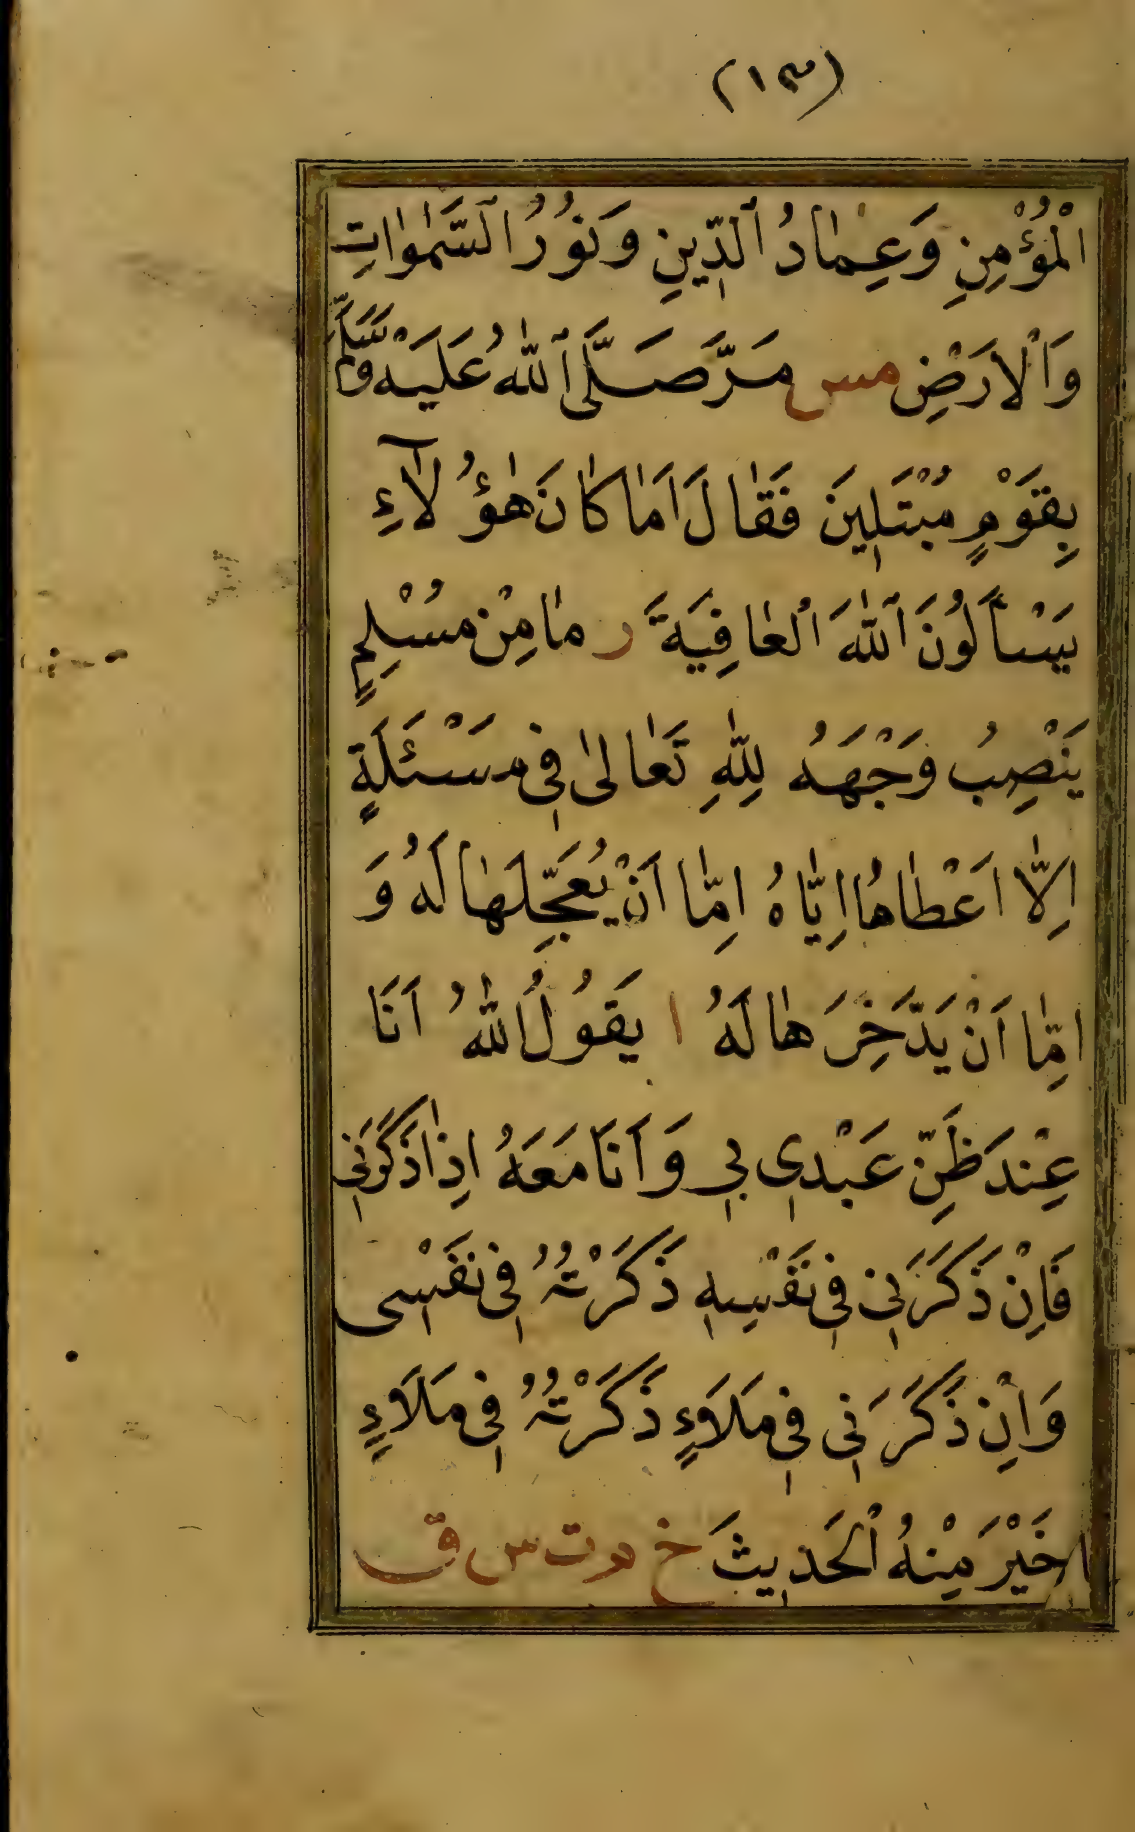 (١٣)
الْمُؤْمِنِ وَعِمَادُ الدِّينِ وَنُورُ السَّمٰوَاتِ
وَالْاَرْضِ مس مَرَّ صَلَّى اللّٰهُ عَلَيْهِ وَسَلَّمَ
بِقَوْمٍ مُبْتَلِينَ فَقَالَ اَمَا كَانَ هٰؤُلَاءِ
يَسْاَلُونَ اللّٰهَ الْعَافِيَةَ ر مَا مِنْ مُسْلِمٍ
يَنْصِبُ وَجْهَهُ لِلّٰهِ تَعَالٰى فِى مَسْئَلَةٍ
اِلَّا اَعْطَاهَا اِيَّاهُ اِمَّا اَنْ يُعَجِّلَهَا لَهُ وَ
اِمَّا اَنْ يَدَّخِرَهَا لَهُ ا يَقُولُ اللّٰهُ اَنَا
عِنْدَ ظَنِّ عَبْدِى بِى وَاَنَا مَعَهُ اِذَا ذَكَرَنِى
فَاِنْ ذَكَرَنِى فِى نَفْسِهِ ذَكَرْتُهُ فِى نَفْسِى
وَاِنْ ذَكَرَنِى فِى مَلَاءٍ ذَكَرْتُهُ فِى مَلَاءٍ
خَيْرٍ مِنْهُ الْحَدِيثَ خ م ت س ق